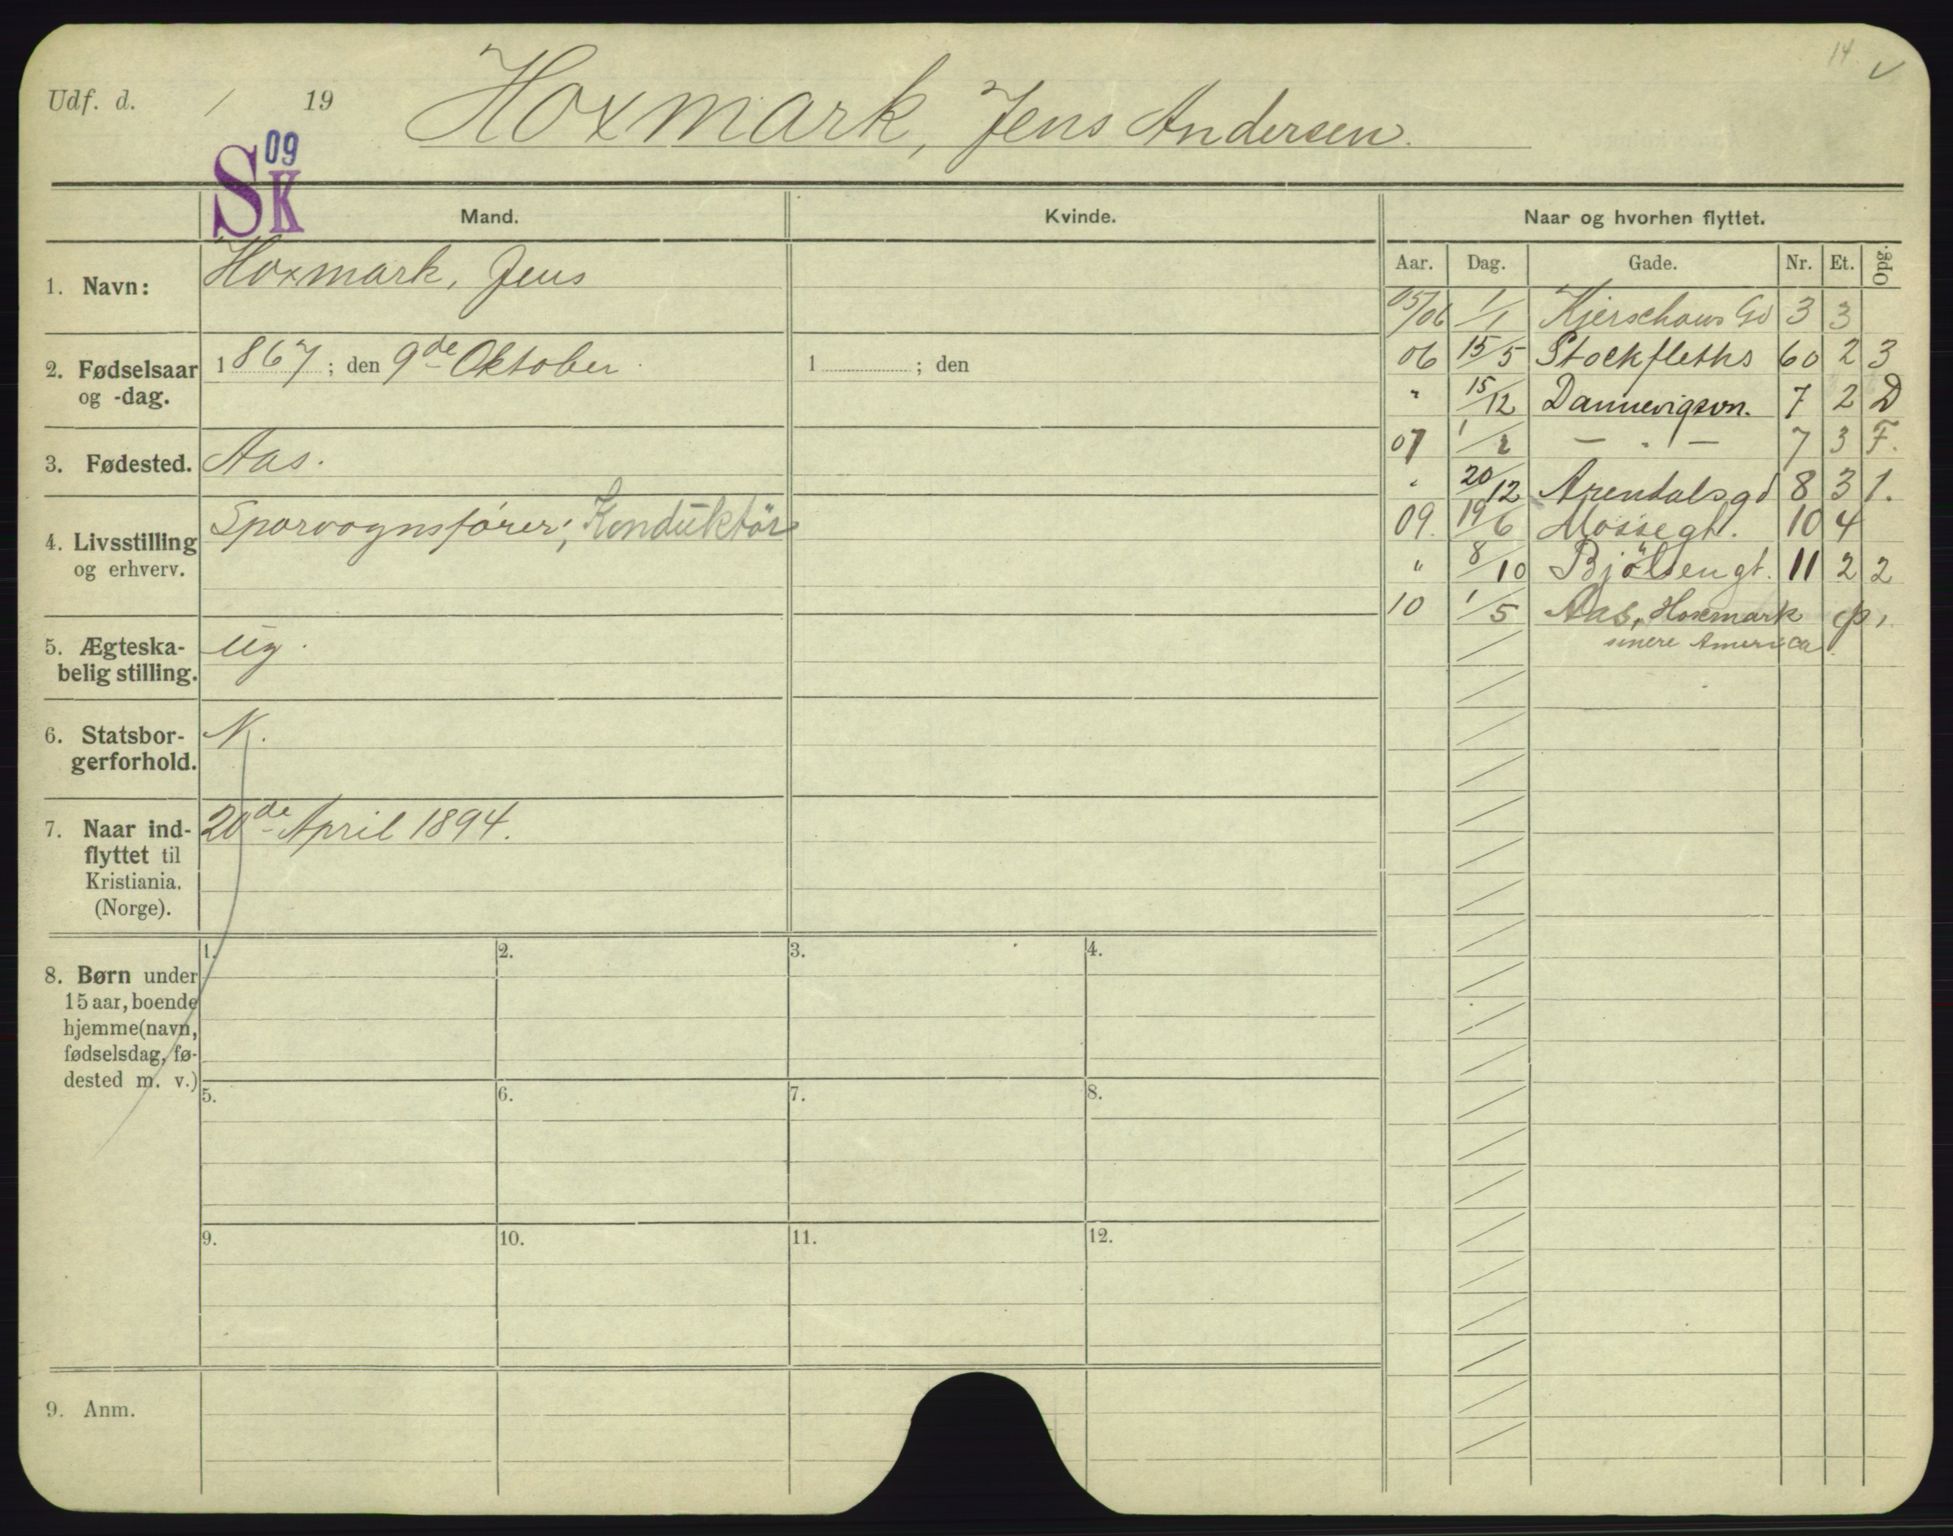 14 ✓
Udf. d. / 19 Hoxmark, Jens Andersen.
09
SK
Mand. Kvinde. Naar og hvorhen flyttet.
Aar. Dag. Gade. Nr. Et. Opg.
1. Navn: Hoxmark, Jens
2. Fødselsaar og -dag. 1867; den 9de Oktober 1 ; den
3. Fødested. Aas.
4. Livsstilling og erhverv. Sporvognsfører; Konduktör
5. Ægteskabelig stilling. Ug.
6. Statsborgerforhold. N.
7. Naar indflyttet til Kristiania. (Norge). 20de April 1894.
8. Børn under 15 aar, boende hjemme (navn, fødselsdag, fødested m. v.)
1. 2. 3. 4.
5. 6. 7. 8.
9. 10. 11. 12.
9. Anm.
05/06 1/1 Kjerschows Gd 3 3
06 15/5 Stockfleths 60 2 3
" 15/12 Dannevigsvn. 7 2 D
07 1/2 — " — 7 3 F.
" 20/12 Arendalsgd 8 3 1.
09. 19/6 Mossegt. 10 4
" 8/10 Bjölsengt. 11 2 2
10 1/5 Aas, Hoxmark
senere America